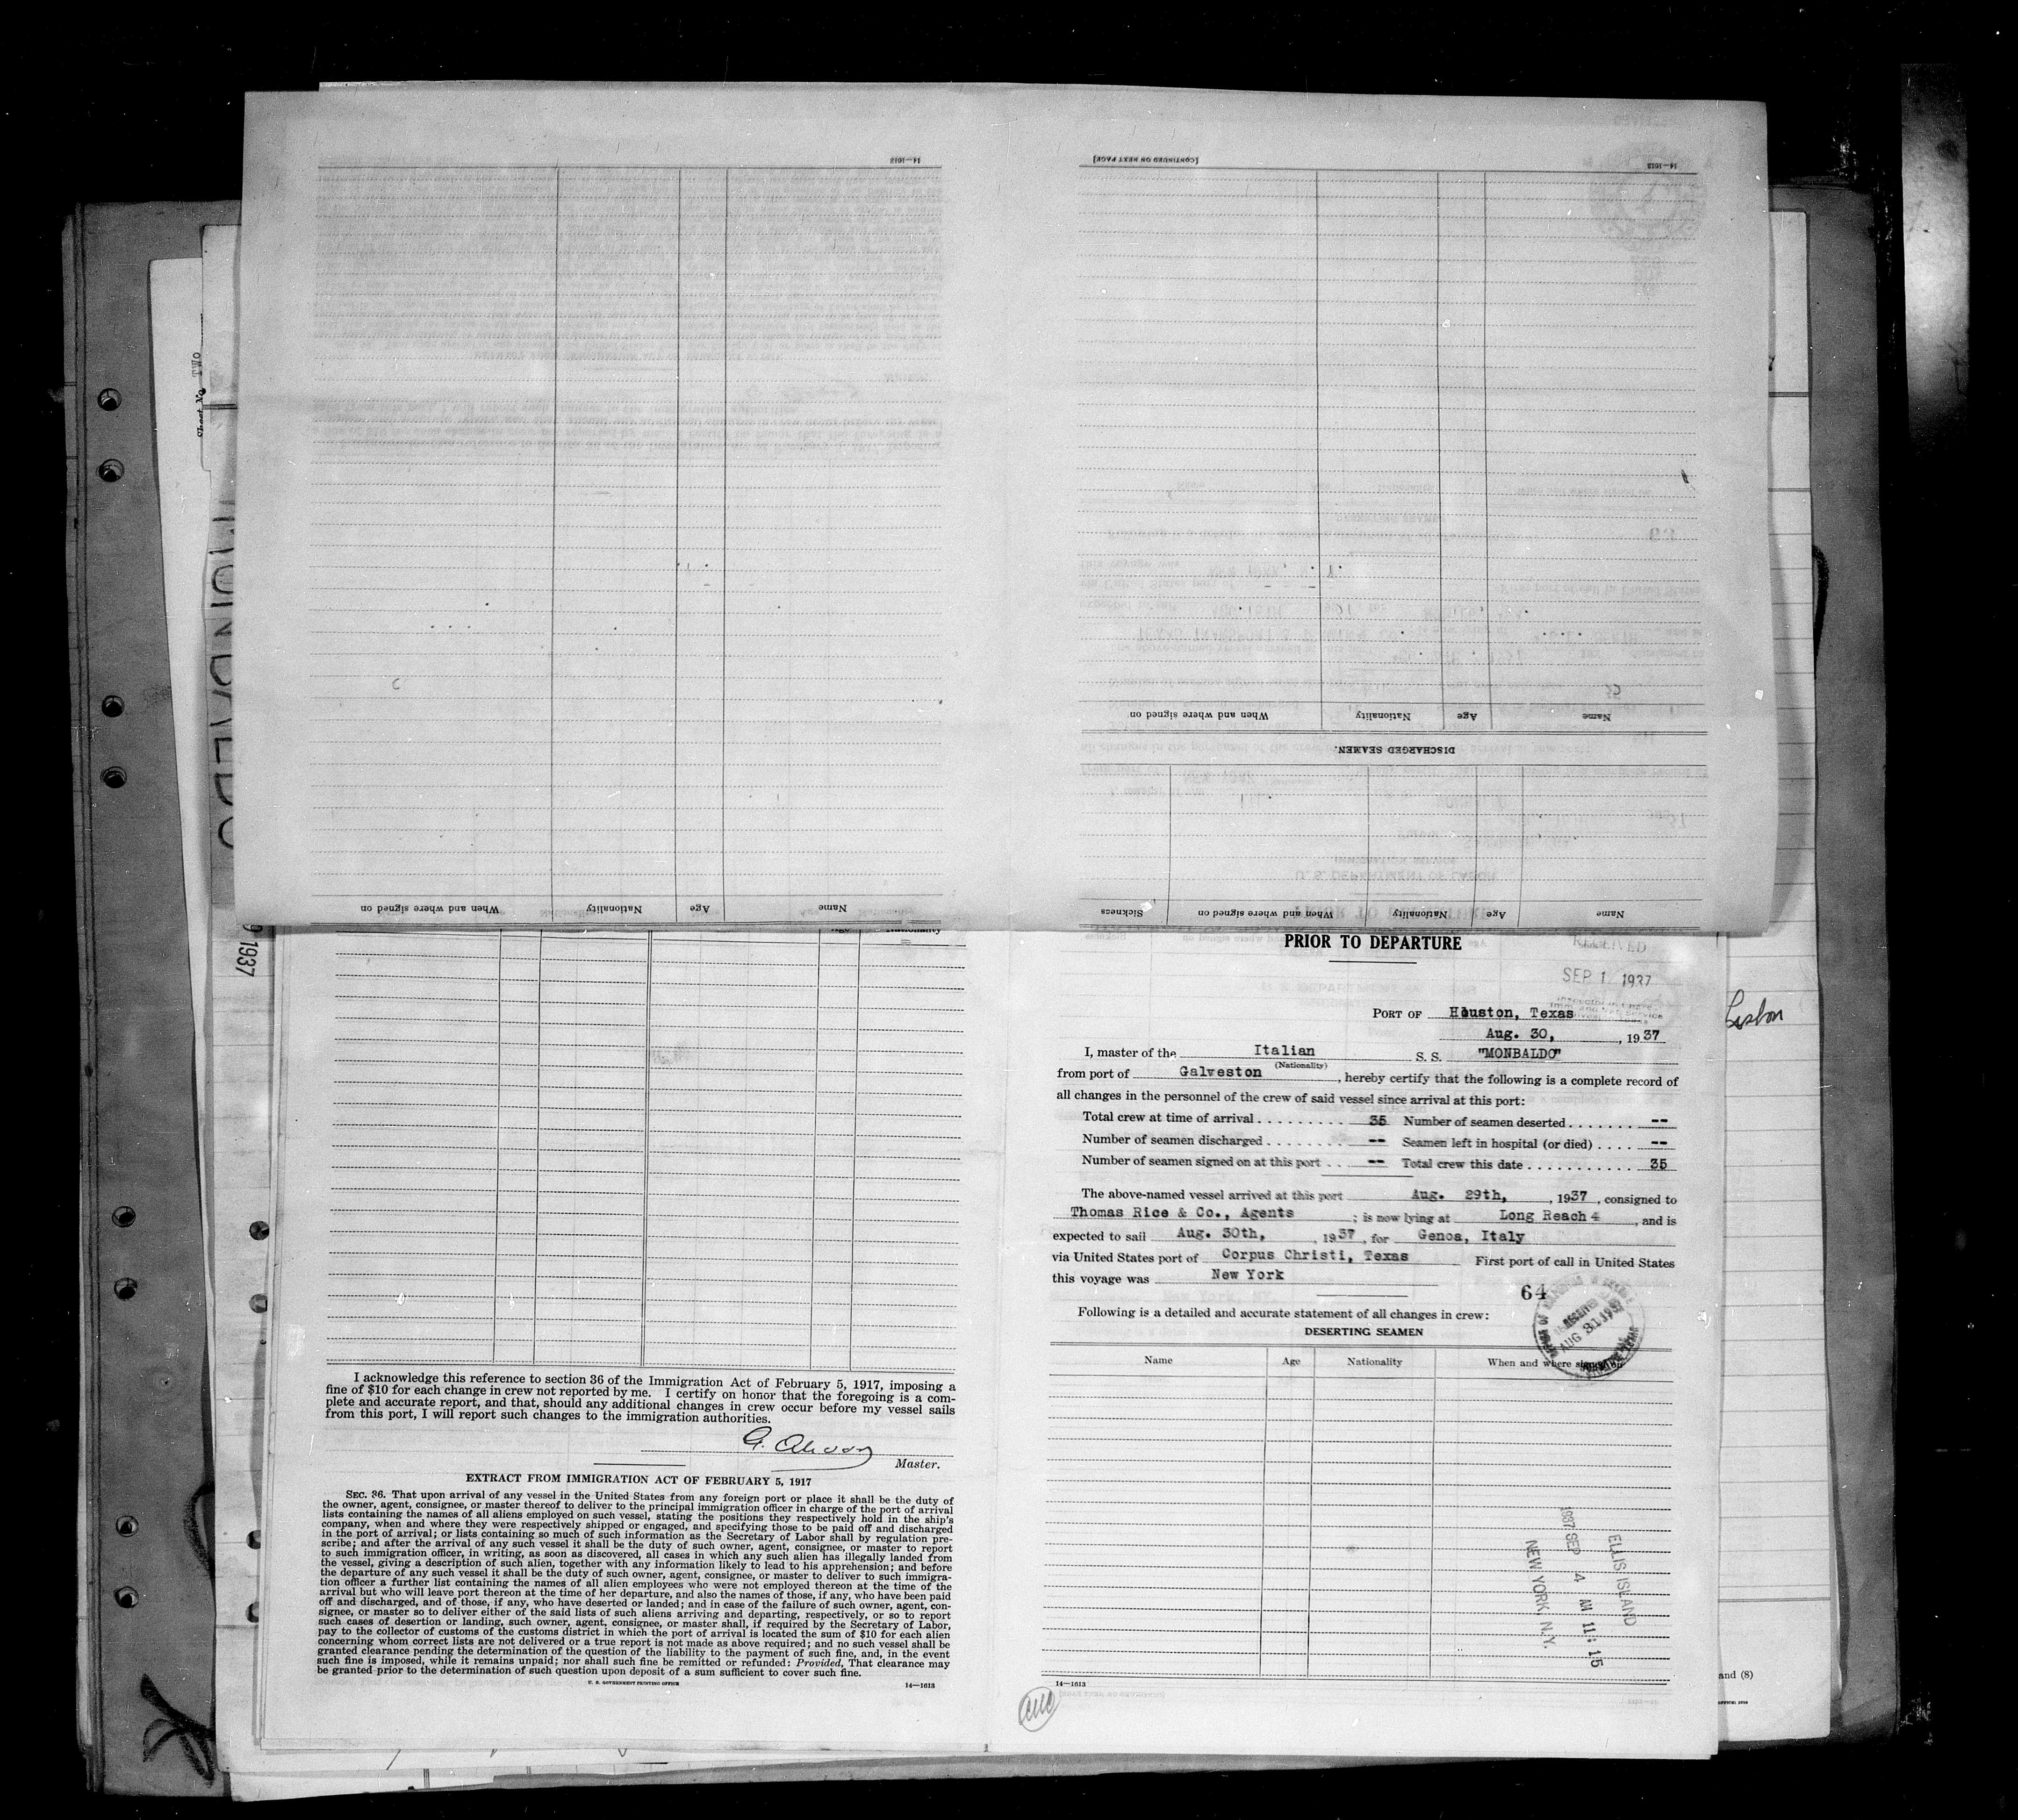 14—1613
[CONTINUED ON NEXT PAGE]
14—1613
Name
Age
Nationality
When and where signed on
DISCHARGED SEAMEN.
Name
Age
Nationality
When and where signed on
Sickness
Name
Age
Nationality
When and where signed on
Sheet No. TWO
1937
Lisbon
PRIOR TO DEPARTURE
RECEIVED
SEP 1 1937
PORT OF Houston, Texas
Aug. 30, , 1937
I, master of the Italian S. S. "MONBALDO"
(Nationality)
from port of Galveston , hereby certify that the following is a complete record of
all changes in the personnel of the crew of said vessel since arrival at this port:
Total crew at time of arrival . . . . . . . . . 35 Number of seamen deserted . . . . . . . --
Number of seamen discharged . . . . . . . -- Seamen left in hospital (or died) . . . . --
Number of seamen signed on at this port . . -- Total crew this date . . . . . . . . . . . 35
The above-named vessel arrived at this port Aug. 29th, , 1937 , consigned to
Thomas Rice & Co., Agents ; is now lying at Long Reach 4 , and is
expected to sail Aug. 30th, , 1937 , for Genoa, Italy
via United States port of Corpus Christi, Texas First port of call in United States
this voyage was New York
64
Following is a detailed and accurate statement of all changes in crew:
RECEIVED
AUG 31 1937
DESERTING SEAMEN
Name Age Nationality When and where signed on
ELLIS ISLAND
1937 SEP 4 AM 11:15
NEW YORK, N.Y.
14—1613
and (8)
I acknowledge this reference to section 36 of the Immigration Act of February 5, 1917, imposing a
fine of $10 for each change in crew not reported by me. I certify on honor that the foregoing is a com-
plete and accurate report, and that, should any additional changes in crew occur before my vessel sails
from this port, I will report such changes to the immigration authorities.
Master.
EXTRACT FROM IMMIGRATION ACT OF FEBRUARY 5, 1917
SEC. 36. That upon arrival of any vessel in the United States from any foreign port or place it shall be the duty of
the owner, agent, consignee, or master thereof to deliver to the principal immigration officer in charge of the port of arrival
lists containing the names of all aliens employed on such vessel, stating the positions they respectively hold in the ship's
company, when and where they were respectively shipped or engaged, and specifying those to be paid off and discharged
in the port of arrival; or lists containing so much of such information as the Secretary of Labor shall by regulation pre-
scribe; and after the arrival of any such vessel it shall be the duty of such owner, agent, consignee, or master to report
to such immigration officer, in writing, as soon as discovered, all cases in which any such alien has illegally landed from
the vessel, giving a description of such alien, together with any information likely to lead to his apprehension; and before
the departure of any such vessel it shall be the duty of such owner, agent, consignee, or master to deliver to such immigra-
tion officer a further list containing the names of all alien employees who were not employed thereon at the time of the
arrival but who will leave port thereon at the time of her departure, and also the names of those, if any, who have been paid
off and discharged, and of those, if any, who have deserted or landed; and in case of the failure of such owner, agent, con-
signee, or master so to deliver either of the said lists of such aliens arriving and departing, respectively, or so to report
such cases of desertion or landing, such owner, agent, consignee, or master shall, if required by the Secretary of Labor,
pay to the collector of customs of the customs district in which the port of arrival is located the sum of $10 for each alien
concerning whom correct lists are not delivered or a true report is not made as above required; and no such vessel shall be
granted clearance pending the determination of the question of the liability to the payment of such fine, and, in the event
such fine is imposed, while it remains unpaid; nor shall such fine be remitted or refunded: Provided, That clearance may
be granted prior to the determination of such question upon deposit of a sum sufficient to cover such fine.
U. S. GOVERNMENT PRINTING OFFICE 14—1613